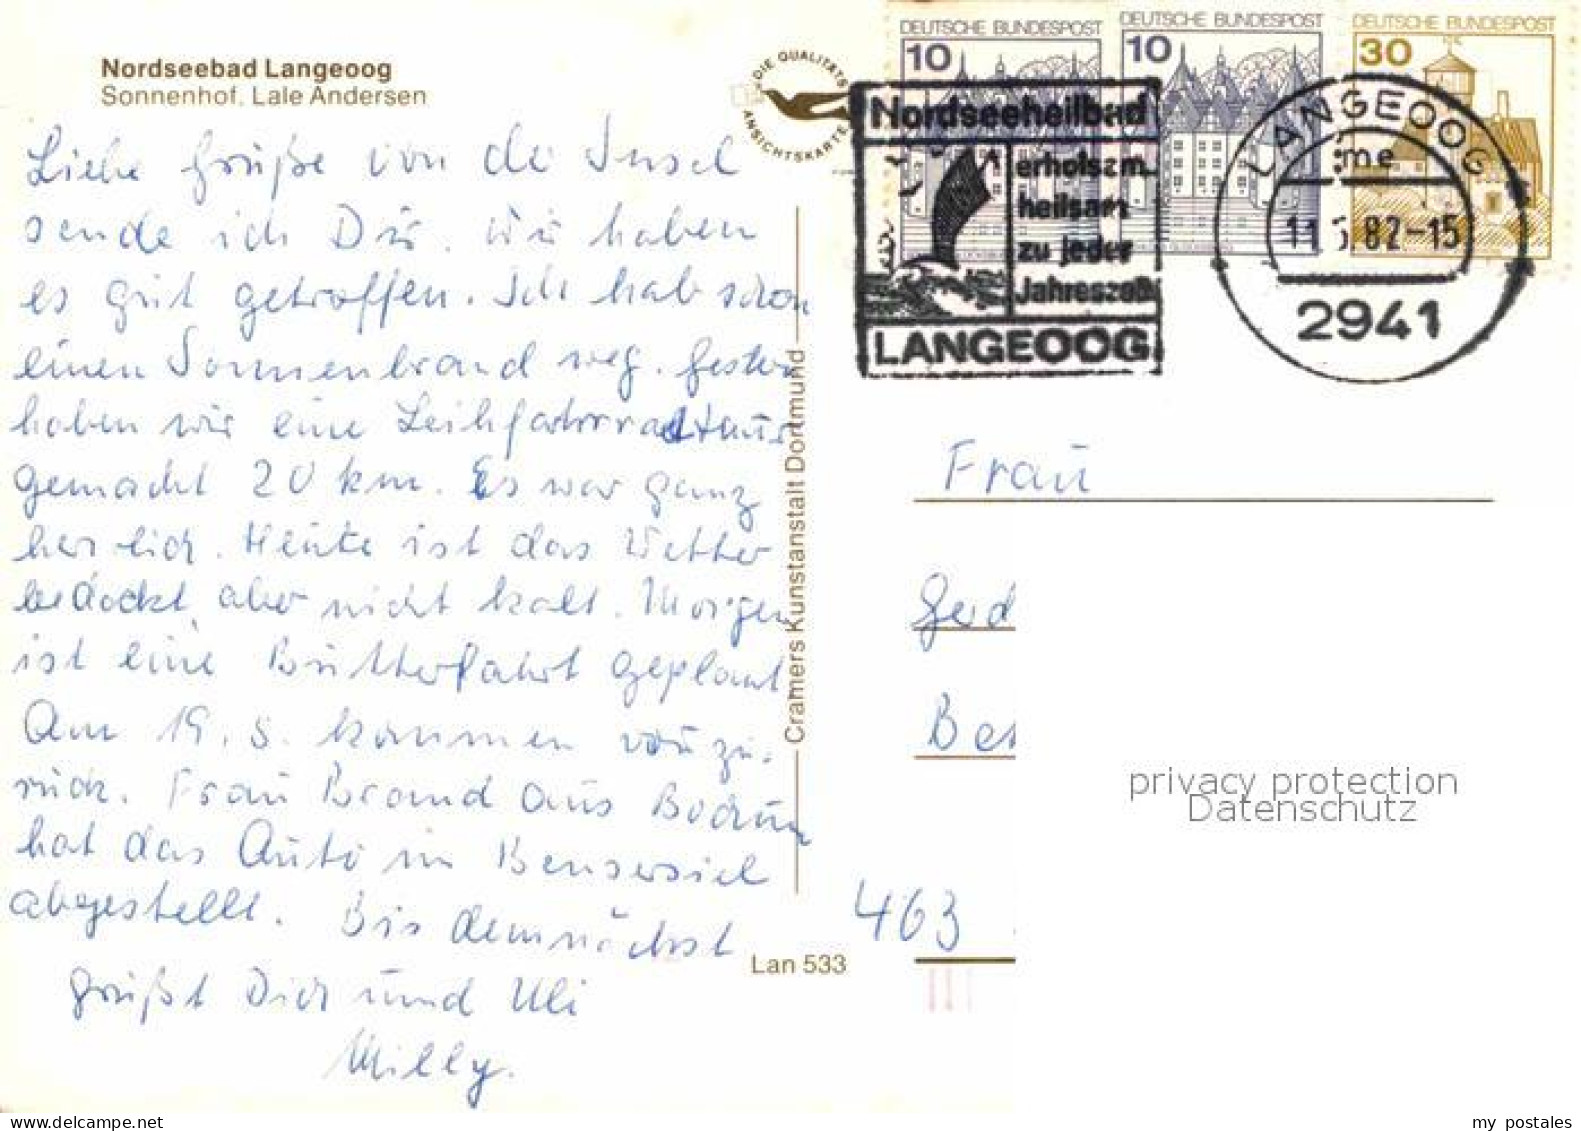 Nordseebad Langeoog
Sonnenhof, Lale Andersen
DIE QUALITÄTS
ANSICHTSKARTE
DEUTSCHE BUNDESPOST
10
DEUTSCHE BUNDESPOST
10
DEUTSCHE BUNDESPOST
30
Nordseeheilbad
erholsam
heilsam
zu jeder
Jahreszeit
LANGEOOG
LANGEOOG
me
82-15
2941
Liebe Grüße von der Insel
sende ich Dir. Wir haben
es gut getroffen. Ich hab schon
einen Sonnenbrand weg. Gestern
haben wir eine Leihfahrradtour
gemacht 20 km. Es war ganz
herrlich. Heute ist das Wetter
bedeckt aber nicht kalt. Morgen
ist eine Butterfahrt geplant.
Am 19. 5. kommen wir zu-
rück. Frau Brand aus Bochum
hat das Auto in Bensersiel
abgestellt. Bis demnächst
grüßt Dich und Uli
Milly.
Cramers Kunstanstalt Dortmund
Lan 533
Frau
Gerd
Be
463
privacy protection
Datenschutz
my postales